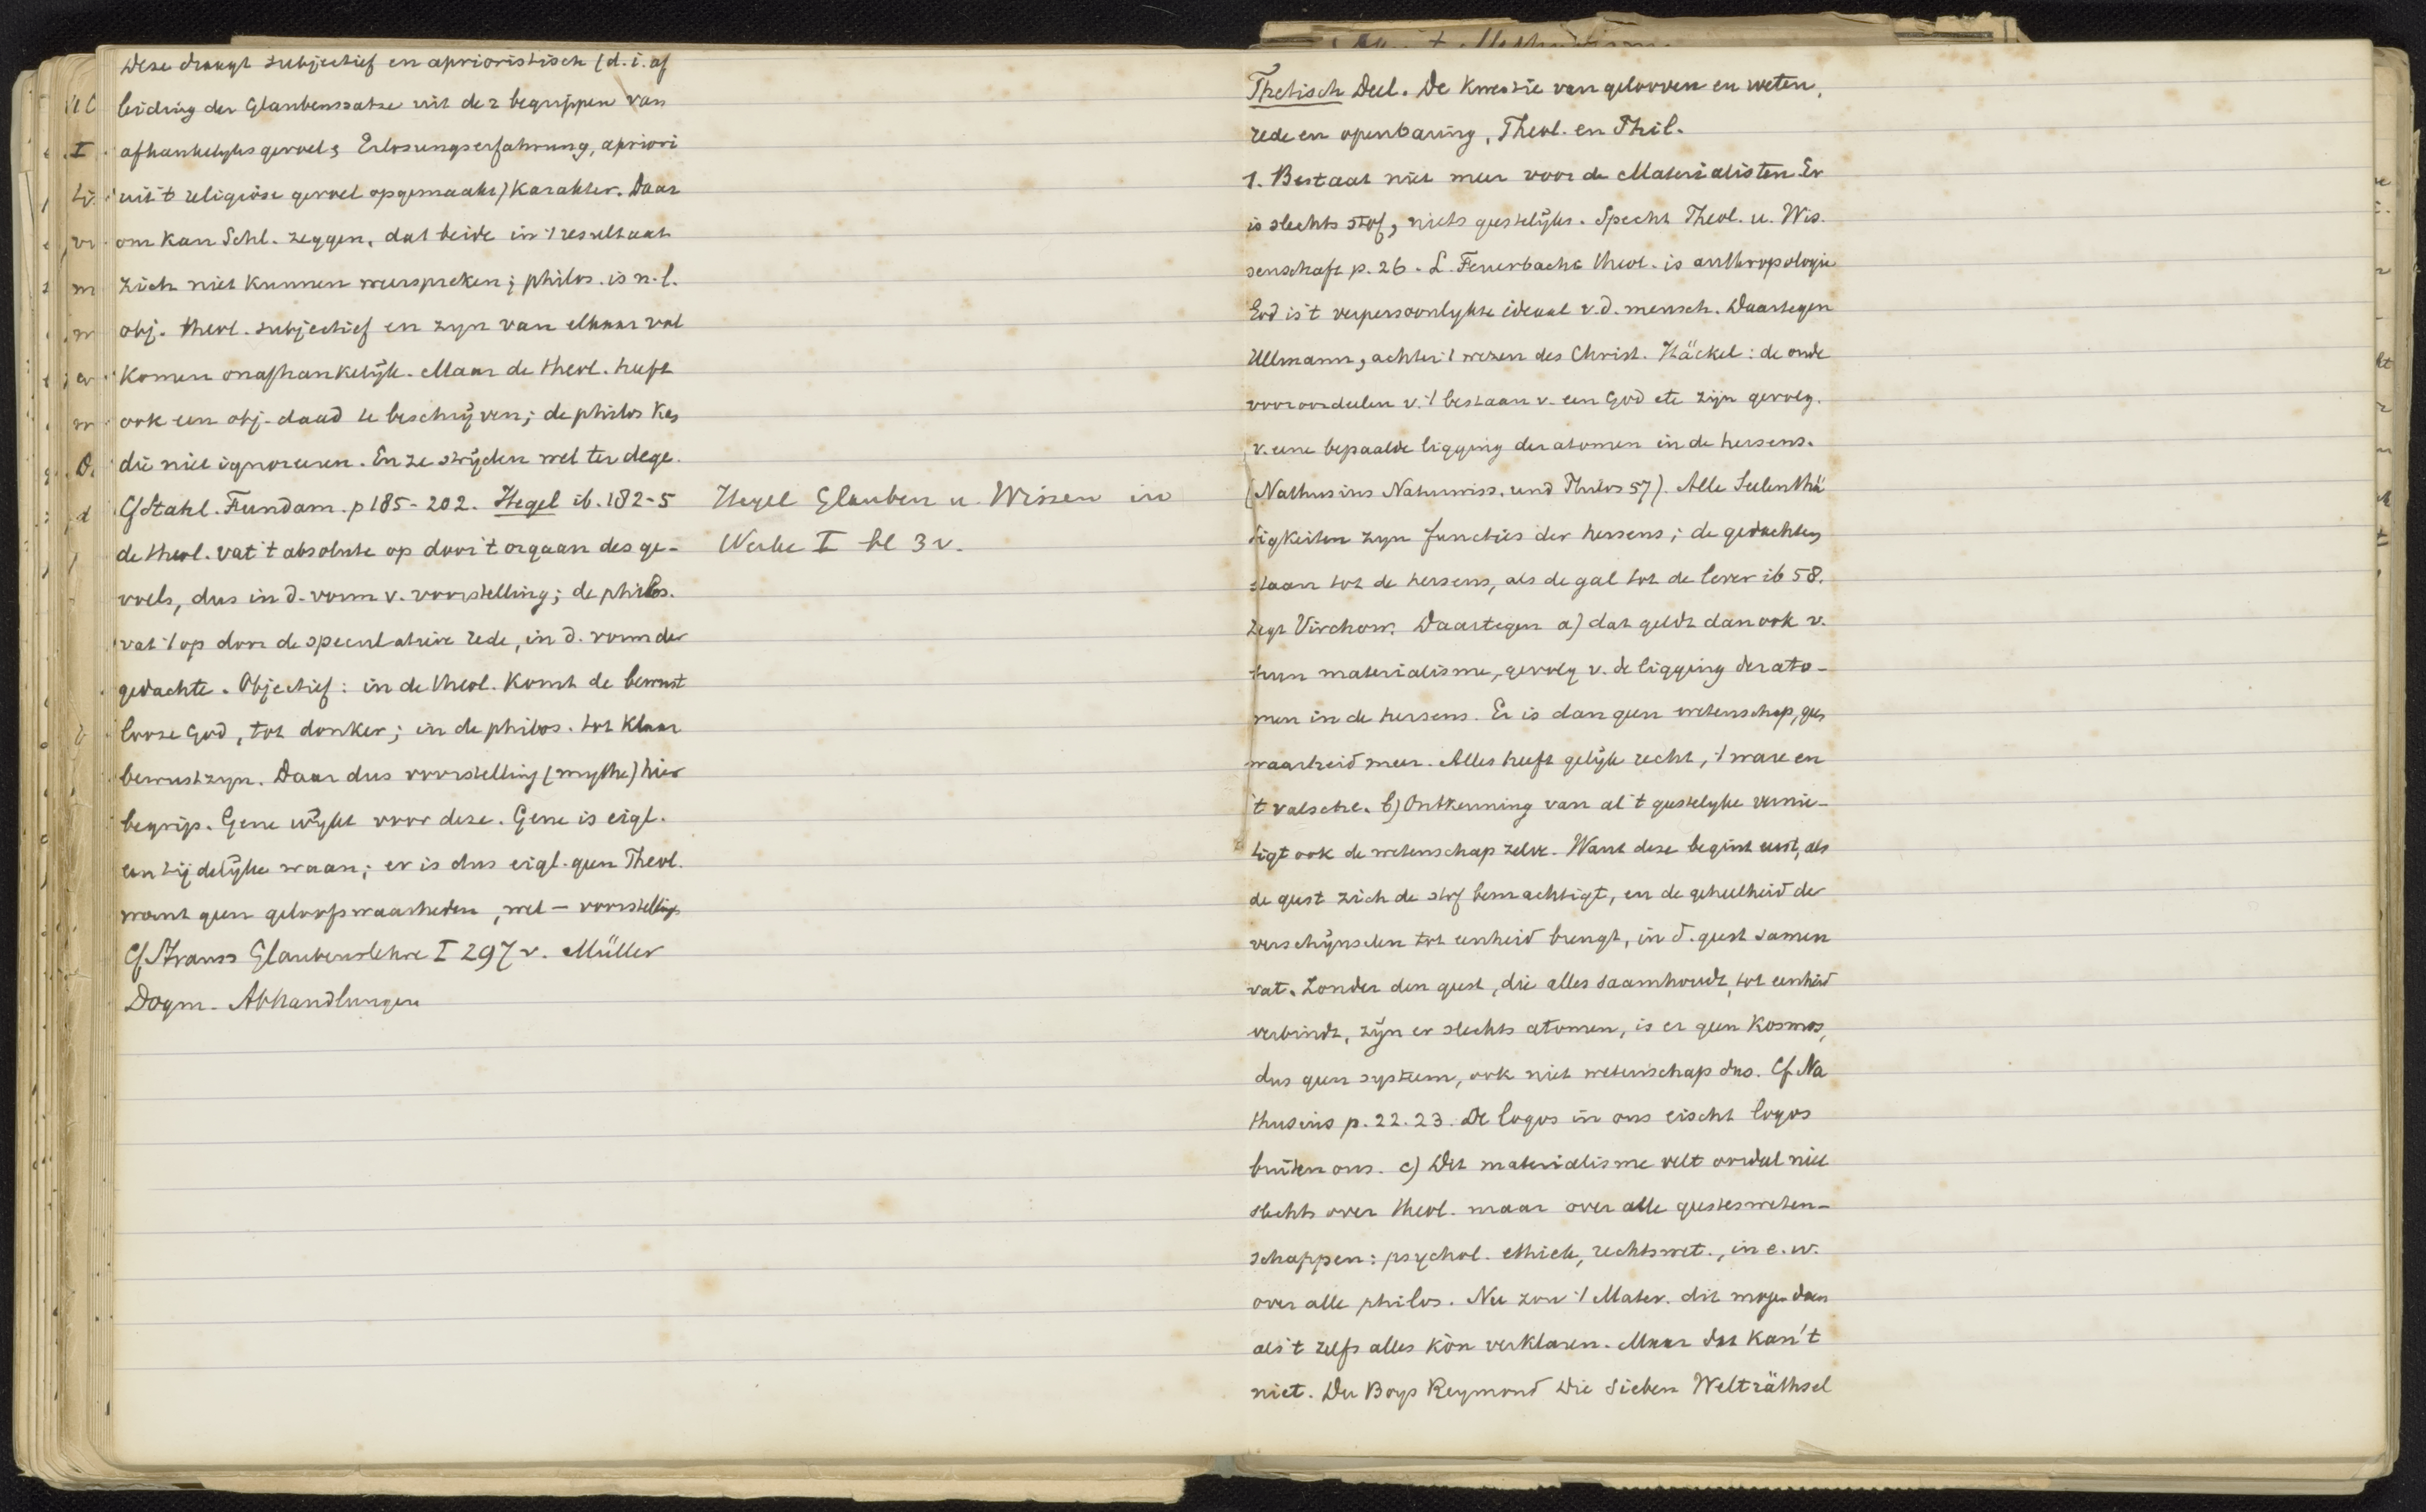 Deze draagt subjectief en aprioristisch (d.i. af
leiding der Glaubenssatze uit de 2 begrippen van
afhankelyks gevoel & Erlosungserfahrung, apriori
uit 't religiöse gevoel opgemaakt) karakter. Daar
om kan Schl. zeggen, dat beide in 't resultaat
zich niet kunnen weerspreken; philos. is n.l.
obj. theol. subjectief en zyn van elkaar vol
komen onafhankelijk. Maar de theol. heeft
ook een obj. daad te beschrijven; de philos kan
die niet ignoreeren. En ze strijden wel ter dege.
Cf Stahl. Fundam. p 185-202. Hegel ib. 182-5
de theol. vat 't absolute op door 't orgaan des ge-
voels, dus in d. vorm v. voorstelling; de philos.
vat 't op door de speculatieve rede, in d. vorm der
gedachte. Objectief: in de theol. komt de bewust
looze God, tot donker; in de philos. tot klaar
bewustzyn. Daar dus voorstelling (mythe) hier
begrip. Gene wijkt voor deze. Gene is eigl.
een tijdelijke waan; er is dus eigl. geen Theol.
want geen geloofswaarheden, wel - voorstelling
Cf Strauss Glaubenslehre I 297 v. Müller
Dogm. Abhandlungen
Hegel Glauben u. Wissen in
Werke I bl 3 v.
Thetisch Deel. De kwestie van gelooven en weten,
rede en openbaring, Theol. en Phil.
1. Bestaat niet meer voor de Materialisten Er
is slechts stof, niets geestelijks. Specht Theol. u. Wis.
senschaft p. 26. L. Feuerbachs theol. is anthropologie
God is 't verpersoonlykte ideaal v.d. mensch. Daartegen
Ullmann, achter 't wezen des Christ. Häckel: de oude
vooroordeelen v. 't bestaan v. een God etc zijn gevolg.
v. eene bepaalde ligging der atomen in de hersens.
(Nathusius Naturwiss. und Philos 57). Alle Seelenthä
tigkeiten zyn functies der hersens; de gedachten
staan tot de hersens, als de gal tot de lever ib 58.
zegt Virchow. Daartegen a) dat geldt dan ook v.
hun materialisme, gevolg v. de ligging der ato-
men in de hersens. Er is dan geen wetenschap, geen
waarheid meer. Alles heeft gelijk recht, 't ware en
't valsche. b) Ontkenning van al 't geestelyke vernie-
tigt ook de wetenschap zelve. Want deze begint eerst, als
de geest zich de stof bemachtigt, en de geheelheid der
verschijnselen tot eenheid brengt, in d. geest samen
vat. Zonder den geest, die alles saamhoudt, tot eenheid
verbindt, zijn er slechts atomen, is er geen Kosmos,
dus geen systeem, ook niet wetenschap dus. Cf Na
thusius p. 22. 23. De logos in ons eischt logos
buiten ons. c) Dit materialisme velt oordeel niet
slechts over theol. maar over alle geestesweten-
schappen: psychol. ethiek, rechtswet., in e. w.
over alle philos. Nu zou 't Mater. dit mogen doen
als 't zelfs alles kòn verklaren. Maar dat kan 't
niet. Du Boys Reymond Die Sieben Welträthsel